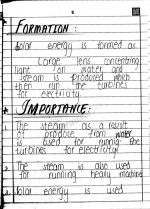 FORMATION:
Solar energy is formed as
Large lens concentrating
light on water and
steam is produced which
then run the turbines
for electricity.
* IMPORTANCE:
1. The steam as a result
of produce from water
is used for runnig the
turbines for electricity
2. The steam is also used
for running heavy machine
3. Solar energy is used